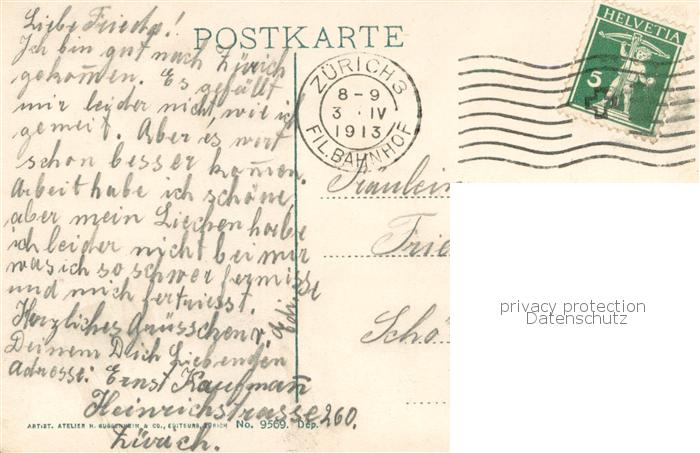 Liebe Frieda!
Ich bin gut nach Zürich
gekom̄en. Es gefällt
mir leider nicht, wie ich
gemeit. Aber es wirt
schon besser kom̄en.
Arbeit habe ich schöne,
aber mein Liebchen habe
ich leider nicht bei mir
was ich so schwer fermisse
und mich fertriesst.
Herzliches Grüsschen v.
Deinem Dich Liebenden
Adresse: Ernst Kaufman̄
Heinrichstrasse 260.
Zürich.
POSTKARTE
ZÜRICH 3
8-9
3. IV
1913
FIL. BAHNHOF
HELVETIA
5
Fräulein
Frie
Schö
privacy protection
Datenschutz
ARTIST. ATELIER H. GUGGENHEIM & CO., EDITEURS, ZÜRICH No. 9569. Dép.